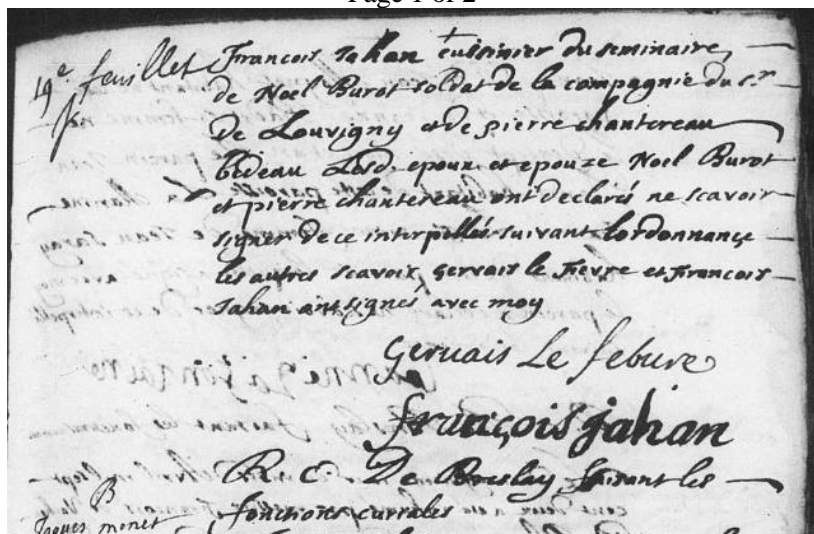 Page 1 of 2
19e feuillet
francois Jahan cuisinier du seminaire,
de Noel Burot soldat de la compagnie du sr
De Louvigny et de pierre chantereau
bedeau Lesd. epoux et epouze Noel Burot
et pierre chantereau ont declarés ne scavoir
signer de ce interpellés suivant lordonnance
les autres scavoir gervais le fievre et francois
Jahan ont signes avec moy
Gervais Le febure
françois jahan
R. C. De Breslay faisant les
fonctions curiales
B
monet